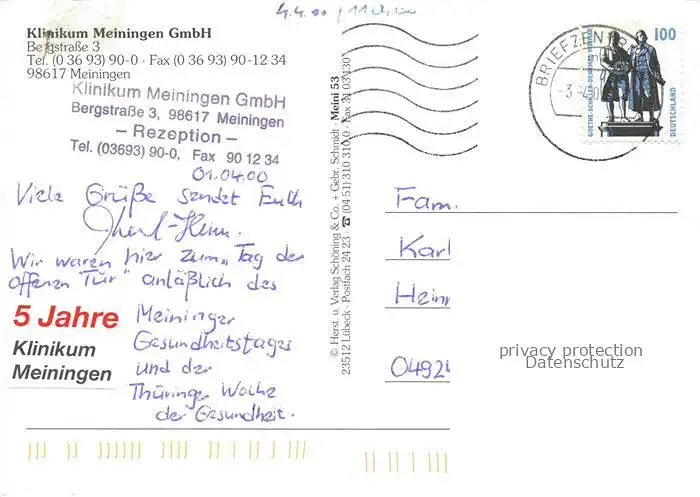 4.4.00 / 11
Klinikum Meiningen GmbH
Bergstraße 3
Tel. (0 36 93) 90-0 · Fax (0 36 93) 90-12 34
98617 Meiningen
Klinikum Meiningen GmbH
Bergstraße 3, 98617 Meiningen
– Rezeption –
Tel. (03693) 90-0, Fax 90 12 34
01.04.00
Viele Grüße sendet Euch
Wir waren hier zum „Tag der
offenen Tür" anläßlich des
Meininger
Gesundheitstages
und der
Thüringer Woche
der Gesundheit.
5 Jahre
Klinikum
Meiningen
© Herst. u. Verlag Schöning & Co. + Gebr. Schmidt · Meini 53
23512 Lübeck · Postfach 24 23 · ☎ (04 51) 310 310 · Fax 31 03 130
BRIEFZENTR
100
GOETHE-SCHILLER-DENKMAL WEIMAR
DEUTSCHLAND
Fam.
Karl
Hein
0492
privacy protection
Datenschutz